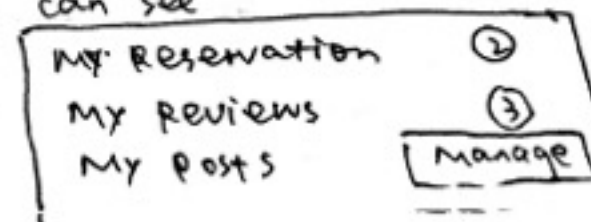 can see
My Reservation ②
My Reviews ③
My Posts Manage